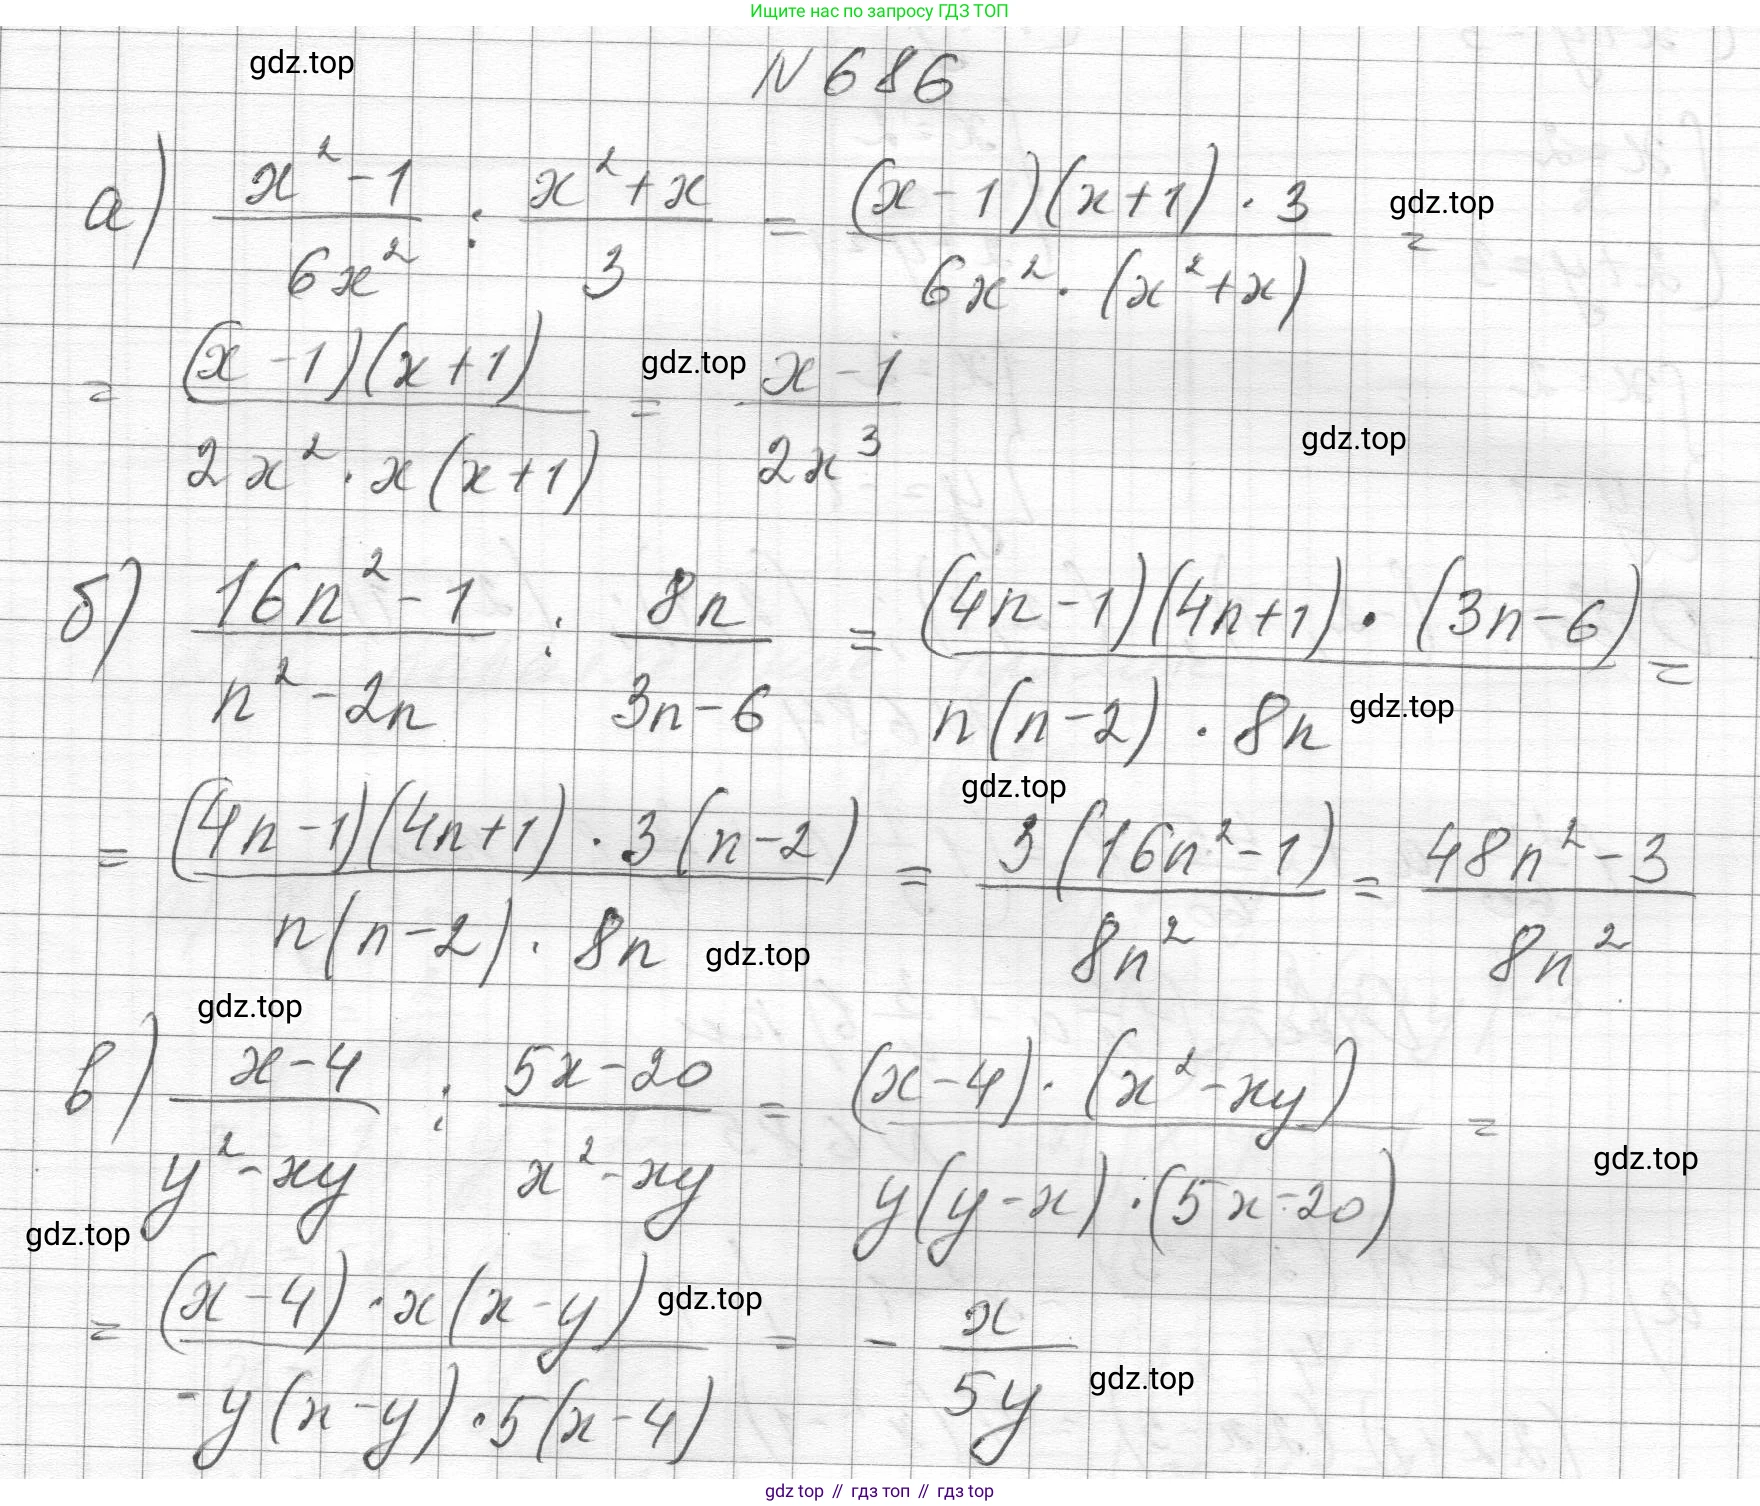 Ищите нас по запросу ГДЗ ТОП
gdz.top
N 686
а) (x² - 1)/(6x²) : (x² + x)/3 = ((x - 1)(x + 1) · 3)/(6x² · (x² + x)) =
gdz.top
= ((x - 1)(x + 1))/(2x² · x(x + 1)) = (x - 1)/(2x³)
gdz.top
gdz.top
б) (16n² - 1)/(n² - 2n) : 8n/(3n - 6) = ((4n - 1)(4n + 1) · (3n - 6))/(n(n - 2) · 8n) =
gdz.top
gdz.top
= ((4n - 1)(4n + 1) · 3(n - 2))/(n(n - 2) · 8n) = (3(16n² - 1))/(8n²) = (48n² - 3)/(8n²)
gdz.top
gdz.top
в) (x - 4)/(y² - xy) : (5x - 20)/(x² - xy) = ((x - 4) · (x² - xy))/(y(y - x) · (5x - 20)) =
gdz.top
gdz.top
= ((x - 4) · x(x - y))/(-y(x - y) · 5(x - 4)) = - x/(5y)
gdz.top
gdz.top
gdz top // гдз топ // gdz top